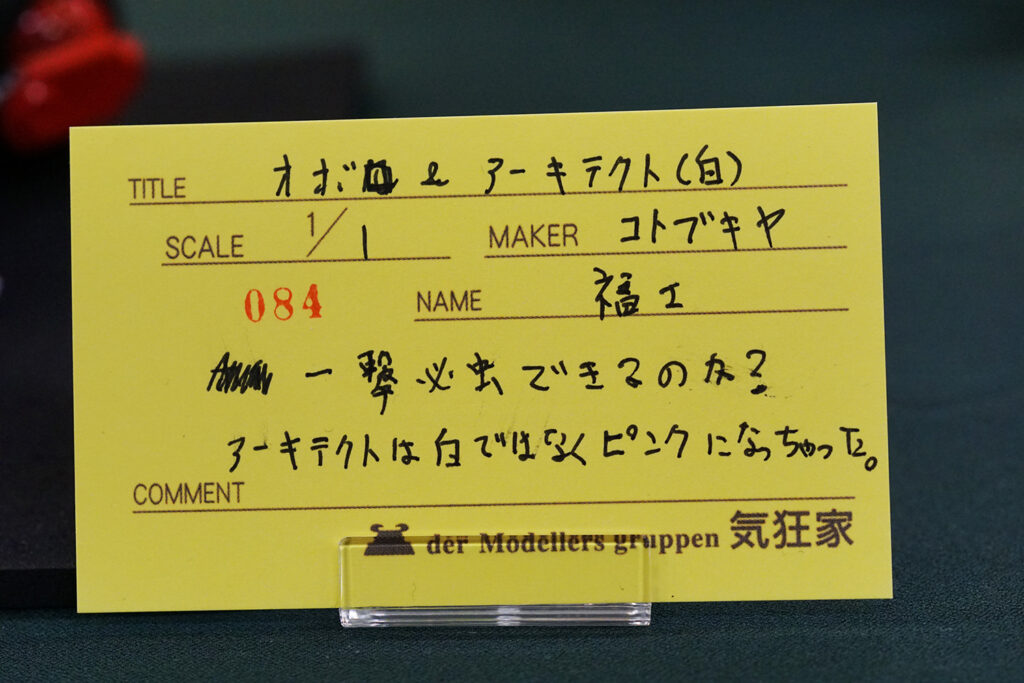 TITLE オボロ & アーキテクト(白)
SCALE 1/1 MAKER コトブキヤ
084 NAME 福士
一撃必虫できるのか?
アーキテクトは白ではなくピンクになっちゃった。
COMMENT
der Modellers gruppen 気狂家